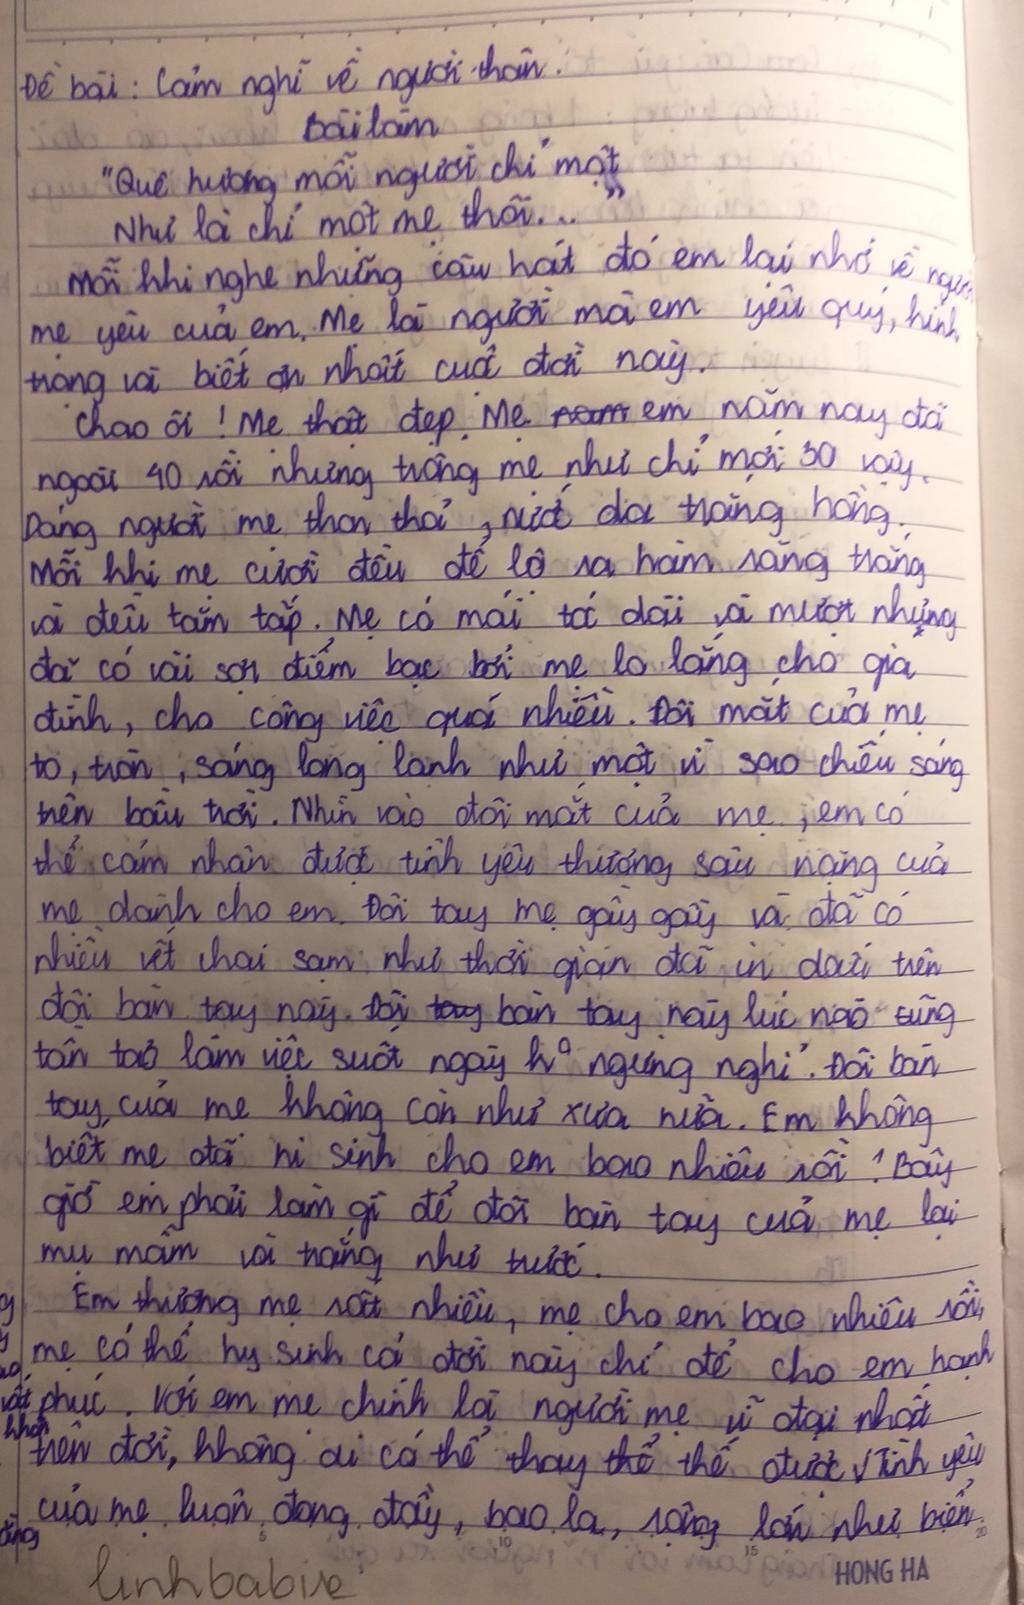 Đề bài: Cảm nghĩ về người thân.
Bài làm
"Quê hương mỗi người chỉ một
Như là chỉ một mẹ thôi..."
Mỗi khi nghe những câu hát đó em lại nhớ về người
mẹ yêu của em. Mẹ là người mà em yêu quý, kính
trọng và biết ơn nhất cuộc đời này.
Chao ôi! Mẹ thật đẹp. Mẹ em năm nay đã
ngoài 40 rồi nhưng trông mẹ như chỉ mới 30 vậy.
Dáng người mẹ thon thả, nước da trắng hồng.
Mỗi khi mẹ cười đều để lộ ra hàm răng trắng
và đều tăm tắp. Mẹ có mái tóc dài và mượt nhưng
đã có vài sợi điểm bạc bởi mẹ lo lắng cho gia
đình, cho công việc quá nhiều. Đôi mắt của mẹ
to, tròn, sáng long lanh như một vì sao chiếu sáng
trên bầu trời. Nhìn vào đôi mắt của mẹ, em có
thể cảm nhận được tình yêu thương sâu nặng của
mẹ dành cho em. Đôi tay mẹ gầy gầy và đã có
nhiều vết chai sạm như thời gian đã in dấu trên
đôi bàn tay này. Đôi bàn tay này lúc nào cũng
tần tảo làm việc suốt ngày ko ngừng nghỉ. Đôi bàn
tay của mẹ không còn như xưa nữa. Em không
biết mẹ đã hi sinh cho em bao nhiêu rồi! Bây
giờ em phải làm gì để đôi bàn tay của mẹ lại
mụ mẫm và trắng như trước.
Em thương mẹ rất nhiều, mẹ cho em bao nhiêu rồi,
mẹ có thể hy sinh cả đời này chỉ để cho em hạnh
phúc. Với em mẹ chính là người mẹ vĩ đại nhất
trên đời, không ai có thể thay thế được. Tình yêu
của mẹ luôn đong đầy, bao la, rộng lớn như biển
5 10 15 20
HONG HA
linhbabie